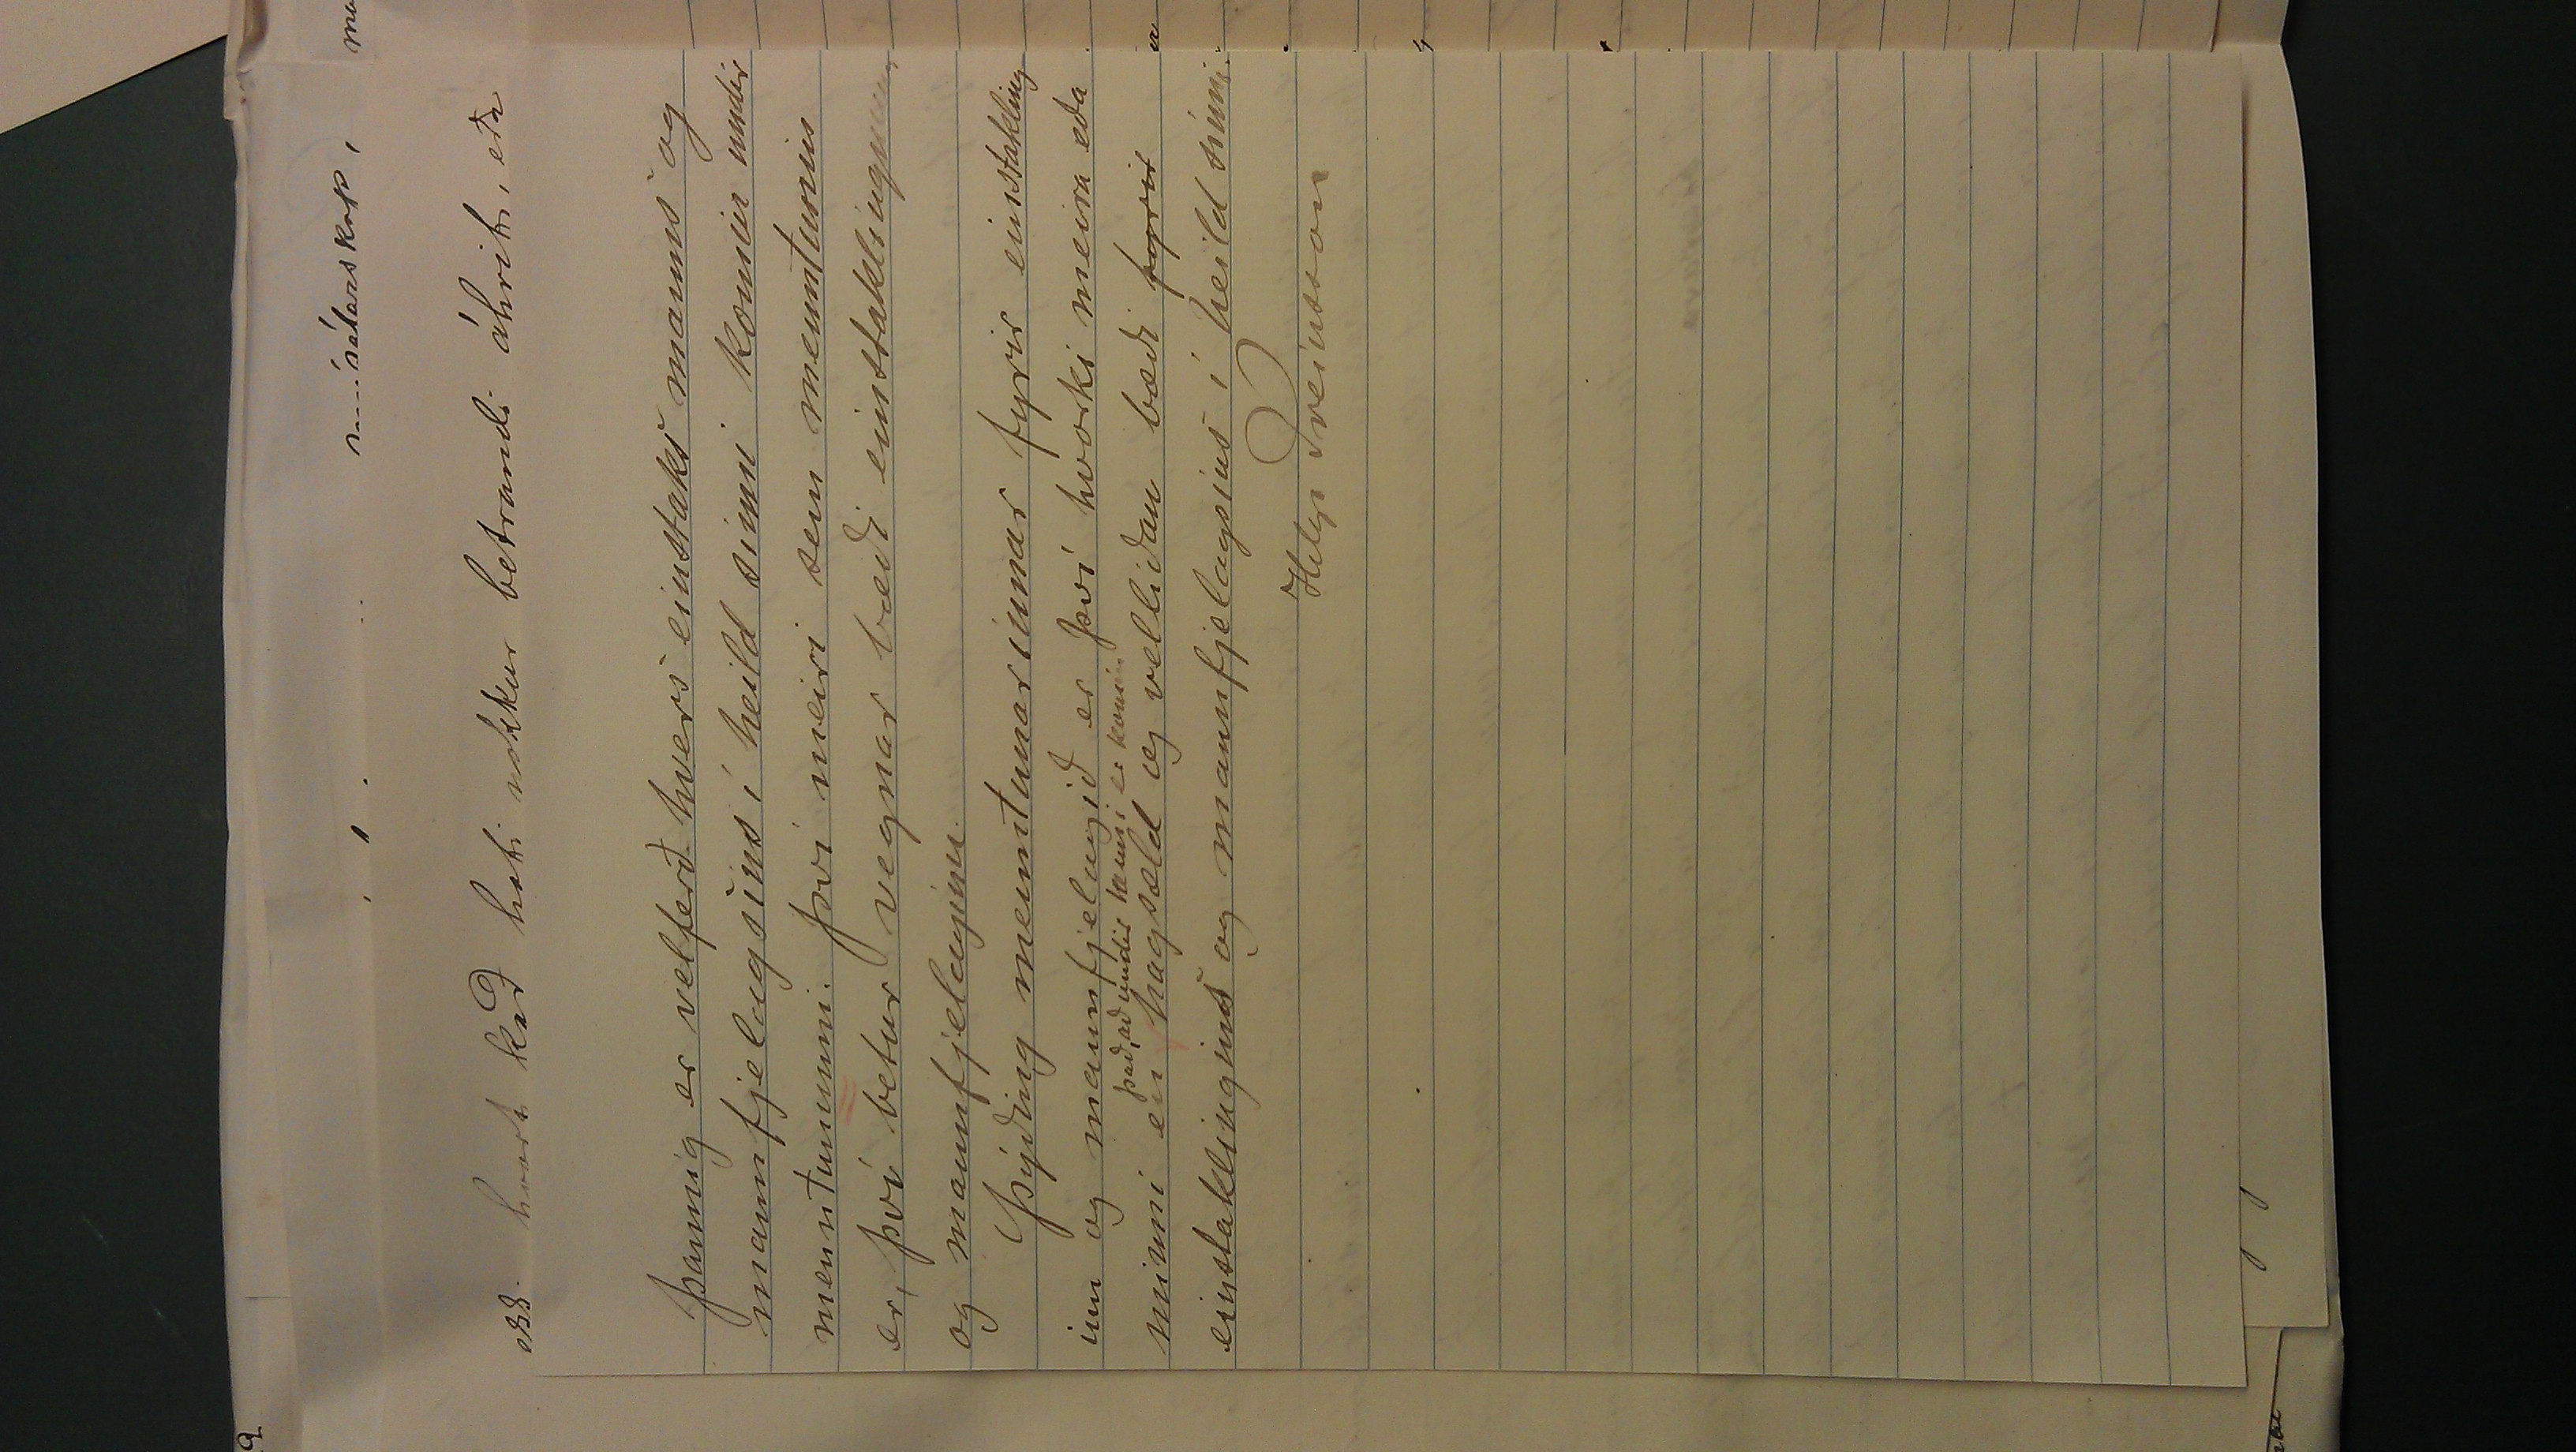 oss. hvort það hafi nokkur betrandi áhrif, eða
Þannig er velferð hvers einstaks manns og
mannfjelagsins í heild sinni komin undir
menntuninni. Því meiri sem menntunin
er, því betur vegnar bæði einstaklingnum
og mannfjelaginu.
Þýðing menntunarinnar fyrir einstakling
inn og mannfjelagið er því hvorki meira eða
það, að undir henni er komin
minni en hagsæld og vellíðan bæði fyrir
einstaklingins og mannfjelagsins í heild sinni.
Helgi Sveinsson